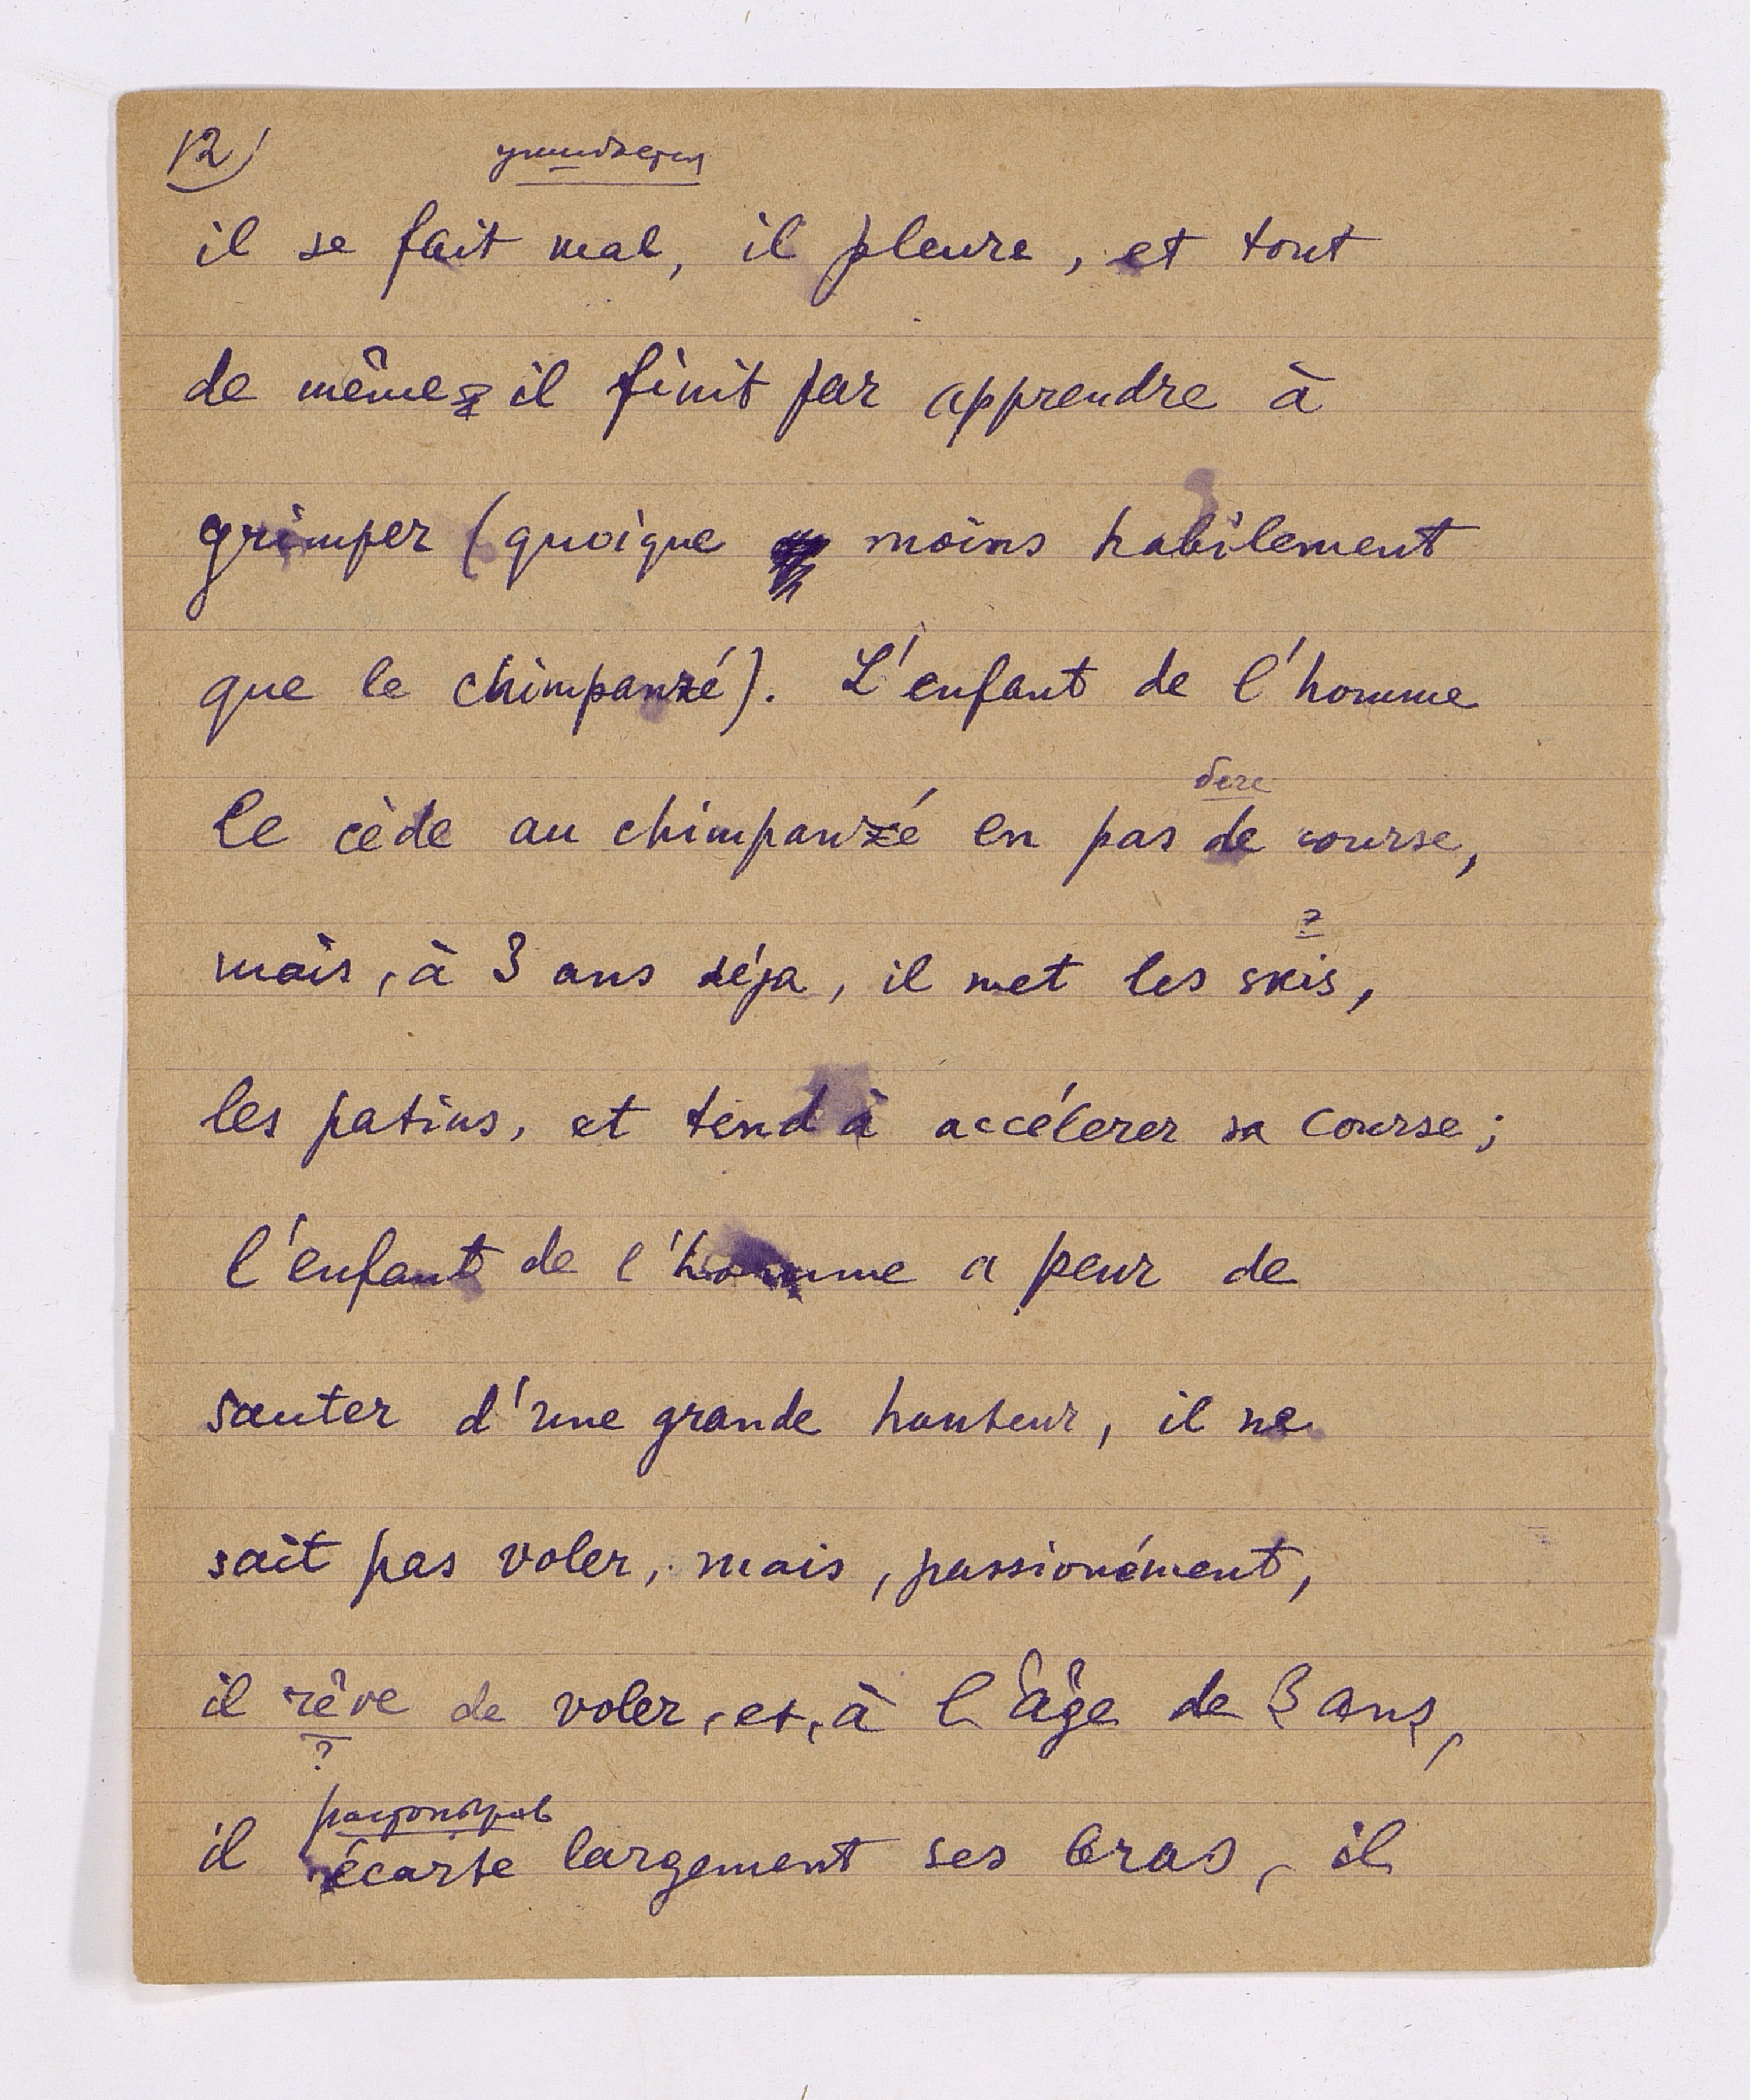 12)
ушибается
il se fait mal, il pleure, et tout
de même il finit par apprendre à
grimper (quoique moins habilement
que le chimpanzé). L'enfant de l'homme
беге
le cède au chimpanzé en pas de course,
?
mais, à 3 ans déja, il met les skis,
les patins, et tend à accélerer sa course;
l'enfant de l'homme a peur de
sauter d'une grande hauteur, il ne
sait pas voler, mais, passionément,
il rêve de voler, et, à l'âge de 3 ans,
?
il écarte largement ses bras, il